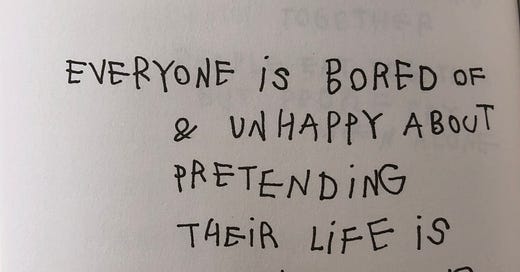 EVERYONE iS BORED OF
& UNHAPPY ABOUT
PRETENDiNG
THEiR LiFE iS